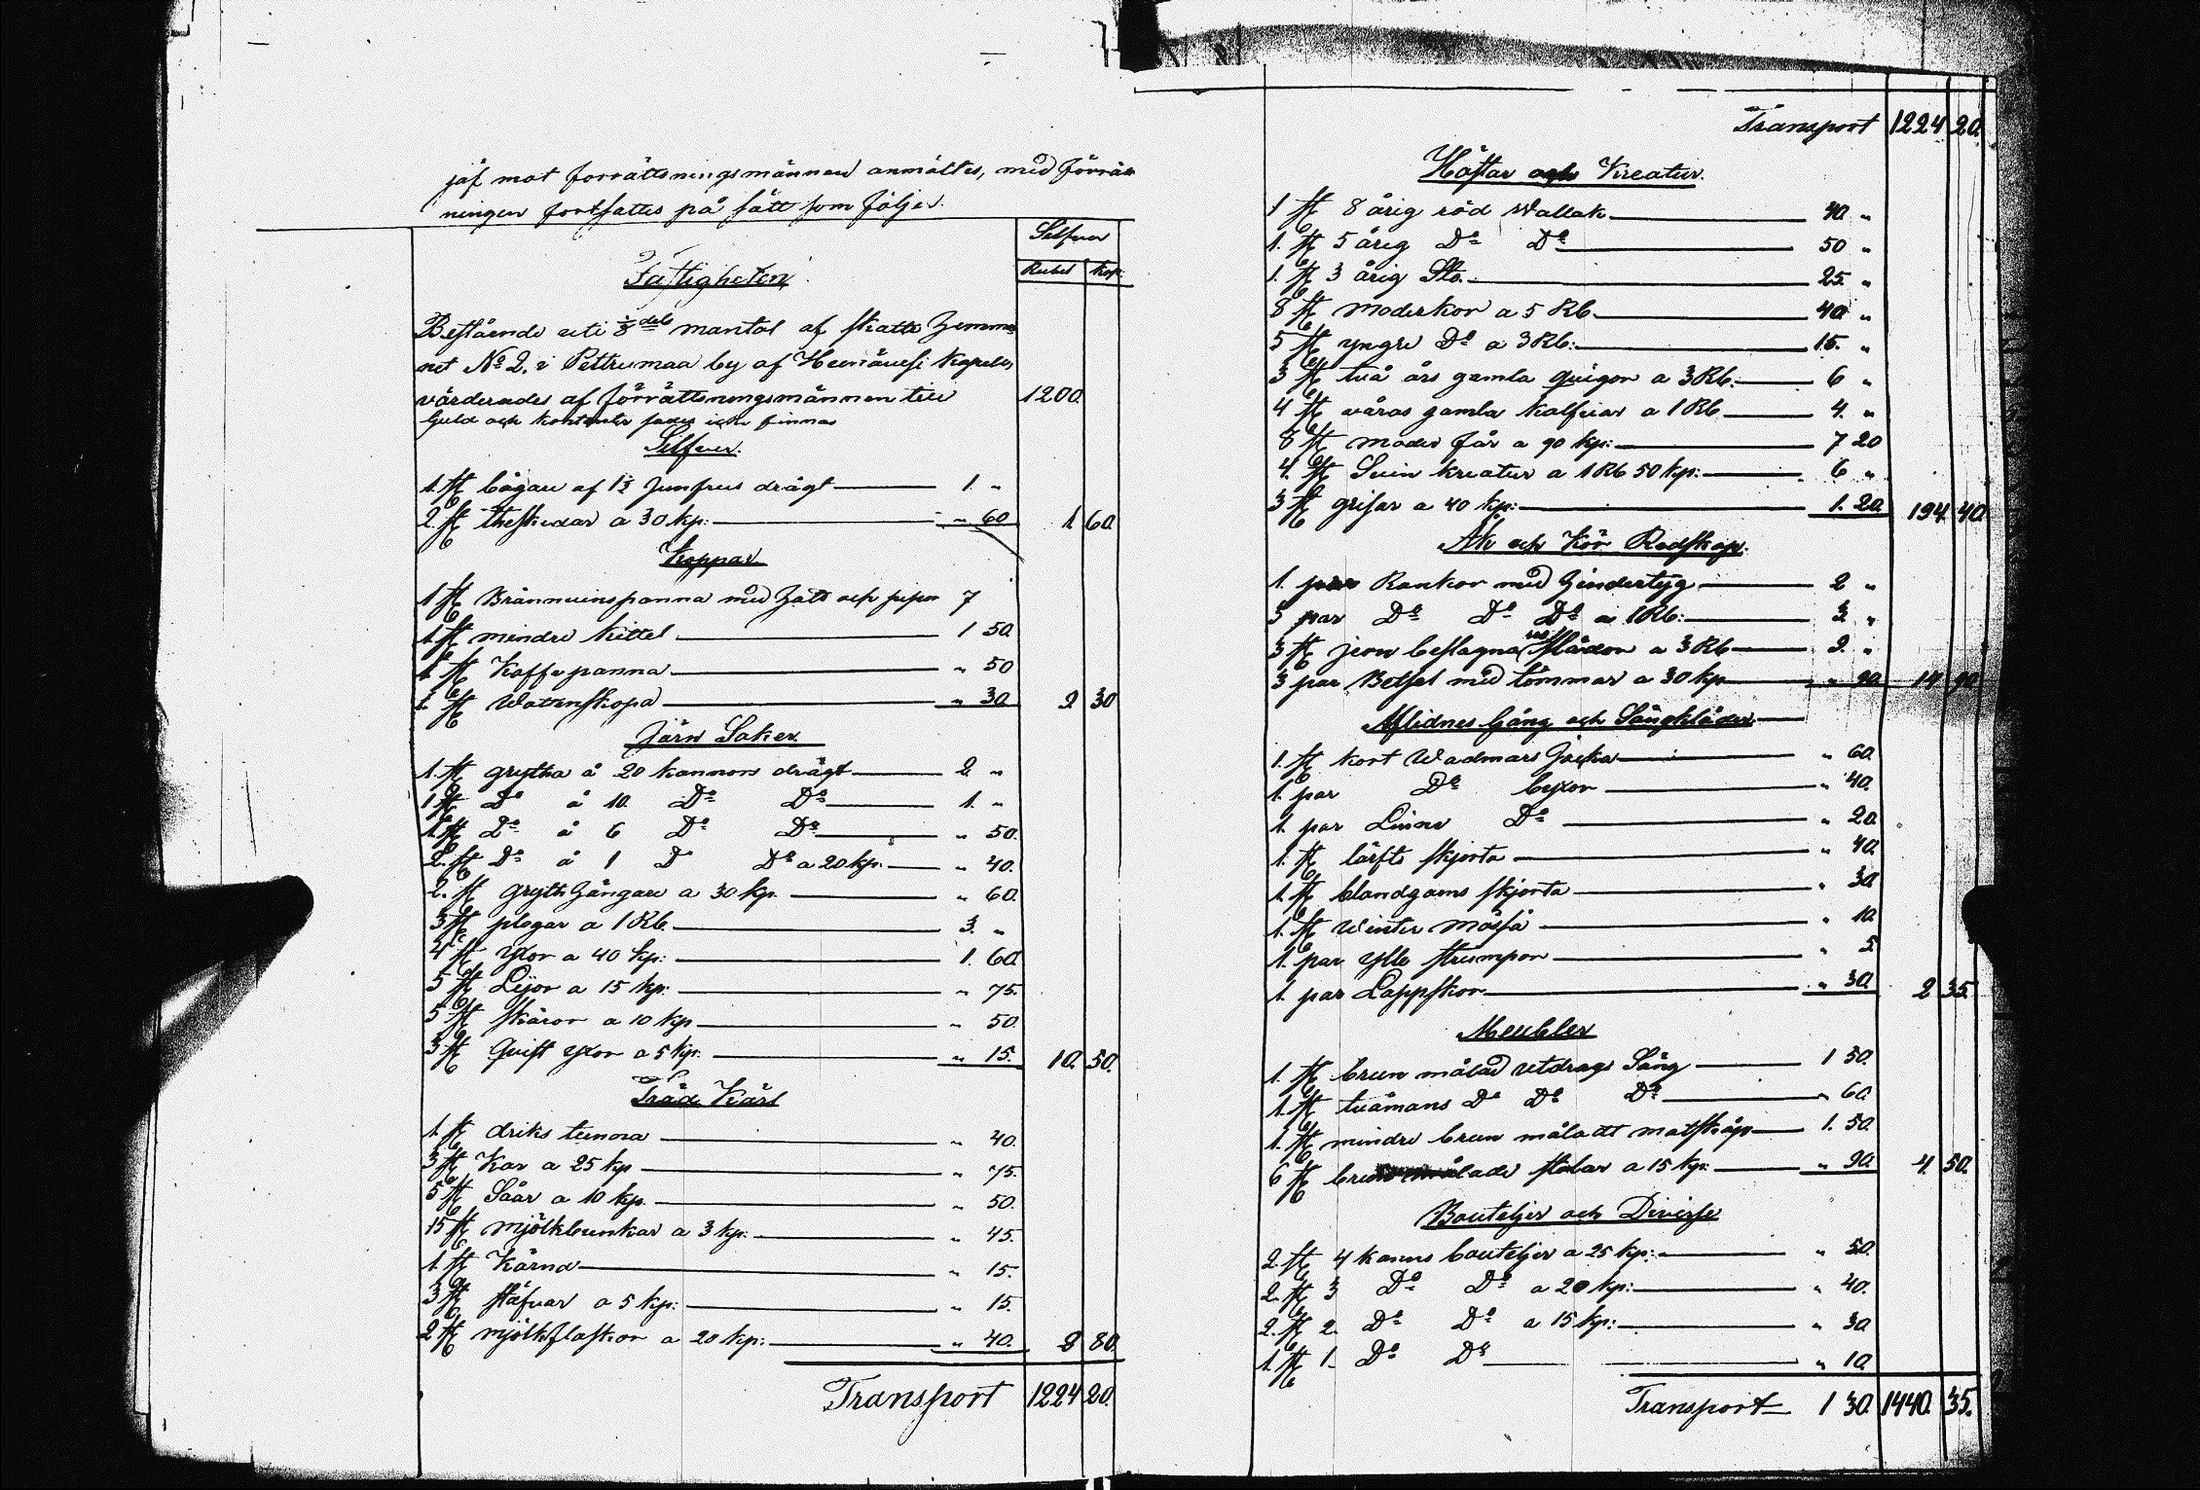 jäf mot förrättningsmännen anmältes, med förrätt
ningen fortsattes på sätt som följer.
Silfver
Rubel Kop.
Fastigheten
Bestående uti 1/8 dels mantal af skatte hemma
net No 2. i Pettumaa by af Heinävesi Kapell,
värderades af förrättningsmännen till 1200.
Guld och kontanter sades icke finnas
Silfver.
1. st bägare af 1½ Jungfrus drägt 1. "
2 st theskedar a 30 kp: " 60 1 60.
Koppar
1 st Bränvinspanna med hatt och pipor 7
1. st mindre kittel 1 50.
1 st Kaffepanna " 50
1 st Watenskopa " 30 9 30
Järn Saker
1. st gryta à 20 kannors drägt 2 "
1 st Do à 10 Do Do 1. "
1 st Do à 6 Do Do " 50.
2. st Do à 1 Do Do a 20 kp: " 40.
2. st gryth hängare a 30 kp. " 60.
3 st plogar a 1 Rb. 3. "
4 st yxor a 40 kp: 1. 60
5 st Lijor a 15 kp: " 75.
5 st skäror a 10 kp " 50.
3 st Quist yxor a 5 kp: " 15. 10. 50.
Träd Kärl
1. st driks tunna " 40.
3 st Kar a 25 kp " 75.
5 st Såar a 10 kp. " 50.
15 st mjölkbunkar a 3 kp: " 45.
1. st Kärna " 15.
3 st stäfvar a 5 kp: " 15.
2 st mjölkflaskor a 20 kp: " 40. 2 80
Transport 1224 20.
Transport 1224 20.
Hästar och Kreatur.
1 st 8 årig röd Wallak 40 "
1. st 5 årig Do Do 50 "
1. st 3 årig Sto. 25. "
8 st moderkor a 5 Rb. 40 "
5 st yngre Do a 3 Rb: 15. "
3 st två års gamla quigor a 3 Rb. 6 "
4 st våras gamla kalfvar a 1 Rb 4. "
8 st moder får a 90 kp: 7 20
4. st Svin kreatur a 1 Rb 50 kp: 6 "
3 st grisar a 40 kp: 1. 20 194. 40.
Åk och Kör Redskap.
1. par Kankor med Hindertyg 2 "
3 par Do Do Do a 1 Rb: 3 "
3 st jern beslagna slädor a 3 Rb 9. "
3 par Betsel med tömmar a 30 kp " 90 14 90
Aflidnes Gång och Sängkläder
1. st kort Wadmars Jacka " 60
1. par Do byxor " 40.
1. par Linne Do " 20
1. st lärfts skjorta " 40.
1. st blandgarns skjorta " 30
1. st Winter mössa " 10.
1. par ylle strumpor " 5
1. par Lappskor " 30. 2 35.
Meubler
1. st brun målad utdrags Säng 1 50.
1. st tvåmans Do Do Do " 60
1. st mindre brun måladt matskåp 1. 50.
6 st brun målade stolar a 15 kp: " 90. 4. 50.
Bouteljer och Diverse
2. st 4 kanns bouteljer a 25 kp: " 50.
2. st 3 Do Do a 20 kp: " 40.
2. st 2. Do Do a 15 kp: " 30
1. st 1. Do Do " 10.
Transport 1 30. 1440. 35.